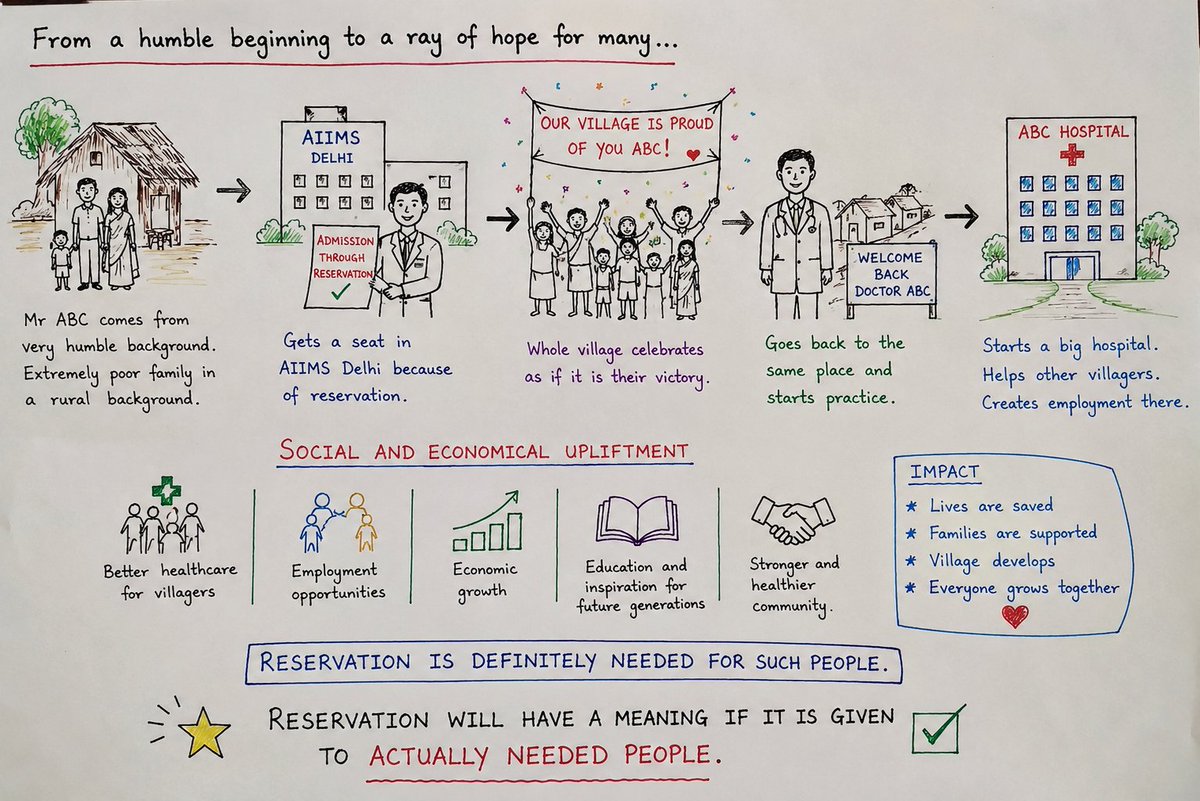 From a humble beginning to a ray of hope for many...
AIIMS
DELHI
ADMISSION
THROUGH
RESERVATION
OUR VILLAGE IS PROUD
OF YOU ABC!
WELCOME
BACK
DOCTOR ABC
ABC HOSPITAL
Mr ABC comes from
very humble background.
Extremely poor family in
a rural background.
Gets a seat in
AIIMS Delhi because
of reservation.
Whole village celebrates
as if it is their victory.
Goes back to the
same place and
starts practice.
Starts a big hospital.
Helps other villagers.
Creates employment there.
SOCIAL AND ECONOMICAL UPLIFTMENT
Better healthcare
for villagers
Employment
opportunities
Economic
growth
Education and
inspiration for
future generations
Stronger and
healthier
community.
IMPACT
* Lives are saved
* Families are supported
* Village develops
* Everyone grows together
RESERVATION IS DEFINITELY NEEDED FOR SUCH PEOPLE.
RESERVATION WILL HAVE A MEANING IF IT IS GIVEN
TO ACTUALLY NEEDED PEOPLE.